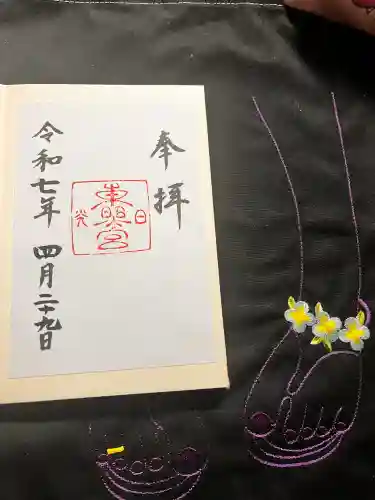 奉拝
日光
東照宮
令和七年 四月二十九日